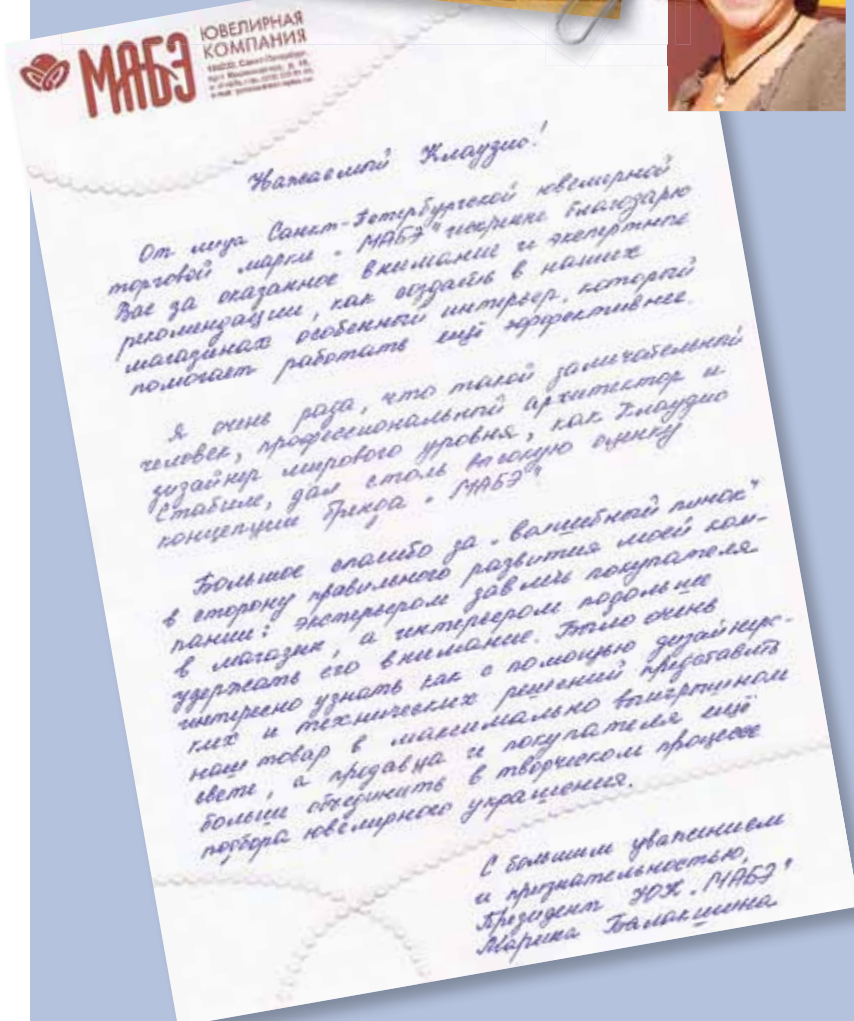 МАБЭ
ЮВЕЛИРНАЯ
КОМПАНИЯ
Уважаемый Клаудио!
От лица Санкт-Петербургской ювелирной
торговой марки „МАБЭ" искренне благодарю
Вас за оказанное внимание и экспертные
рекомендации, как создать в наших
магазинах особенный интерьер, который
помогает работать ещё эффективнее.
Я очень рада, что такой замечательный
человек, профессиональный архитектор и
дизайнер мирового уровня, как Клаудио
Стабиле, дал столь высокую оценку
концепции бренда „МАБЭ"
Большое спасибо за „волшебный пинок"
в сторону правильного развития моей ком-
пании: экстерьером завлечь покупателя
в магазин, а интерьером подольше
удержать его внимание. Было очень
интересно узнать как с помощью дизайнерс-
ких и технических решений представить
наш товар в максимально выигрышном
свете, а продавца и покупателя ещё
больше объединить в творческом процессе
подбора ювелирного украшения.
С большим уважением
и признательностью,
Президент ЮК „МАБЭ"
Марина Балакшина